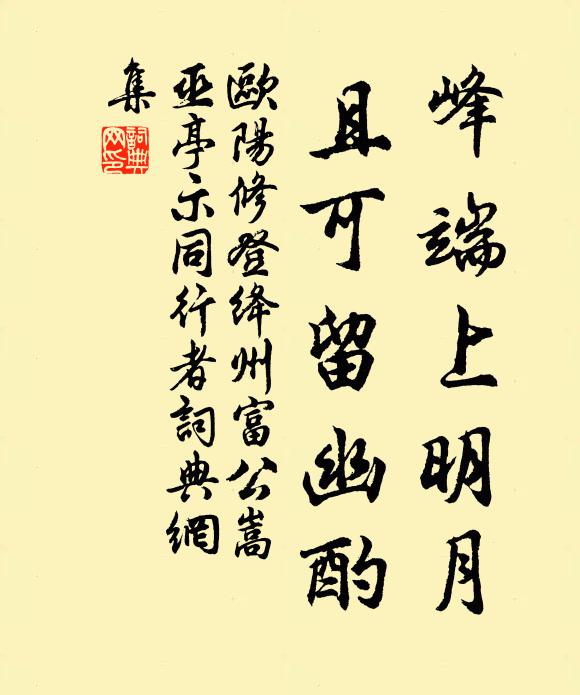 峰端上明月
且可留幽酌
歐陽修登绛州富公嵩
巫亭示同行者詞典網
集
詞典網印